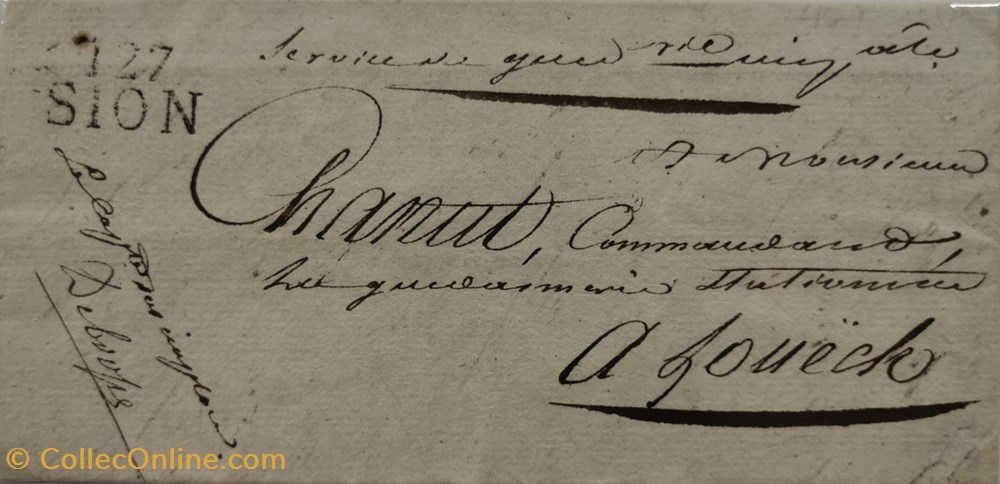 127
SION
Service de gend.rie imp.ale
A Monsieur
Chanut, Commandant,
la gendarmerie Stationnée
A Louëck
Le Cap.
© CollecOnline.com